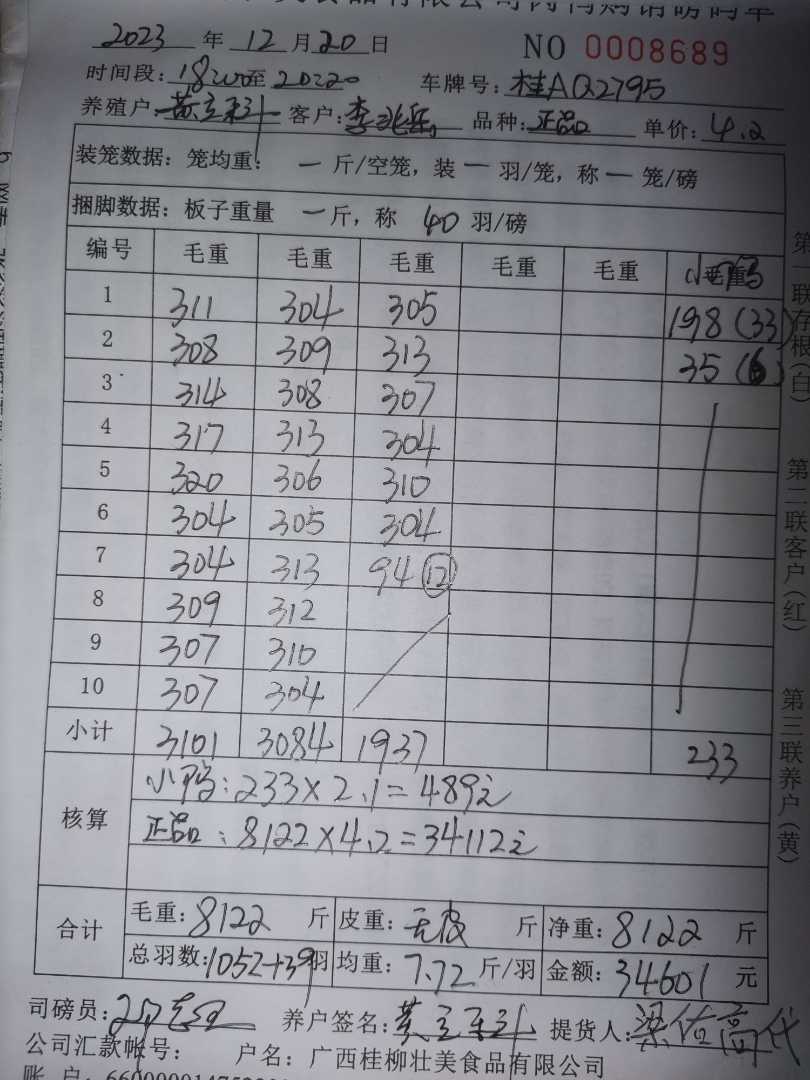 食品有限公司肉鸭购销磅码单
2023 年 12 月 20 日 NO 0008689
时间段: 18:00至 20:20 车牌号: 桂AQ2795
养殖户: 客户: 李兆岳 品种: 正品 单价: 4.2
装笼数据: 笼均重: 一 斤/空笼, 装 一 羽/笼, 称 一 笼/磅
捆脚数据: 板子重量 一 斤, 称 40 羽/磅
编号 毛重 毛重 毛重 毛重 毛重 小鸭
1 311 304 305 198 (33)
2 308 309 313 35 (6)
3 314 308 307
4 317 313 304
5 320 306 310
6 304 305 304
7 304 313 94 (12)
8 309 312
9 307 310
10 307 304
小计 3101 3084 1937 233
核算
小鸭: 233×2.1=489元
正品: 8122×4.2=34112元
合计
毛重: 8122 斤 皮重: 无皮 斤 净重: 8122 斤
总羽数: 1052+39羽 均重: 7.72 斤/羽 金额: 34601 元
司磅员: 养户签名: 提货人: 代
公司汇款帐号: 户名: 广西桂柳壮美食品有限公司
账 户:
第一联存根(白)
第二联客户(红)
第三联养户(黄)